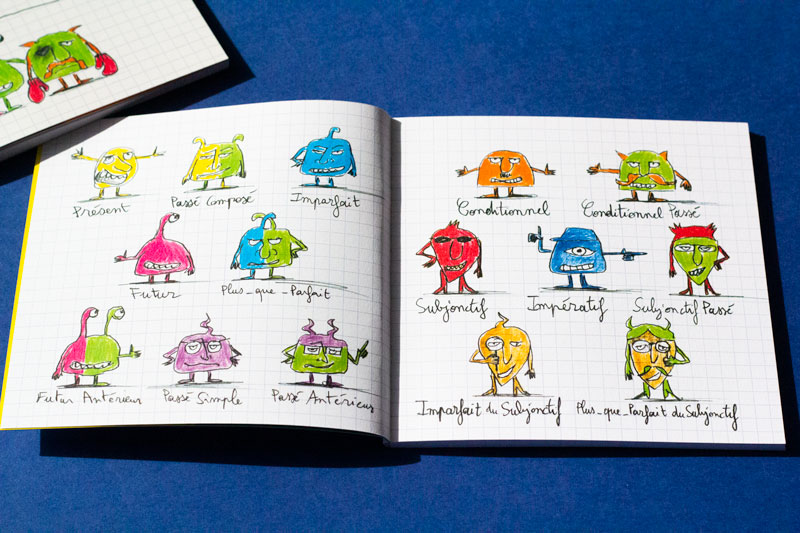 Présent
Passé Composé
Imparfait
Futur
Plus-que-Parfait
Futur Antérieur
Passé Simple
Passé Antérieur
Conditionnel
Conditionnel Passé
Subjonctif
Impératif
Subjonctif Passé
Imparfait du Subjonctif
Plus-que-Parfait du Subjonctif